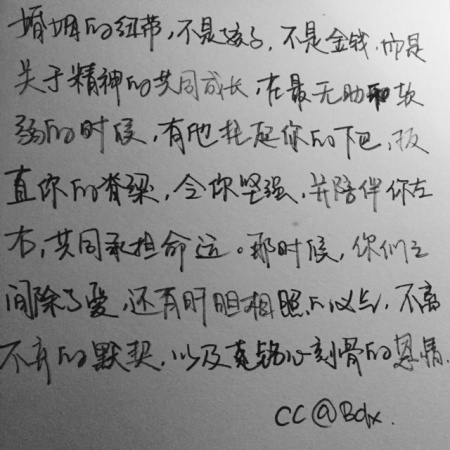 婚姻的纽带,不是孩子,不是金钱,而是
关于精神的共同成长,在最无助和软
弱的时候,有他托起你的下巴,扳
直你的脊梁,令你坚强,并陪伴你左
右,共同承担命运。那时候,你们之
间除了爱,还有肝胆相照的义气,不离
不弃的默契,以及铭心刻骨的恩情.
CC@Bdx.